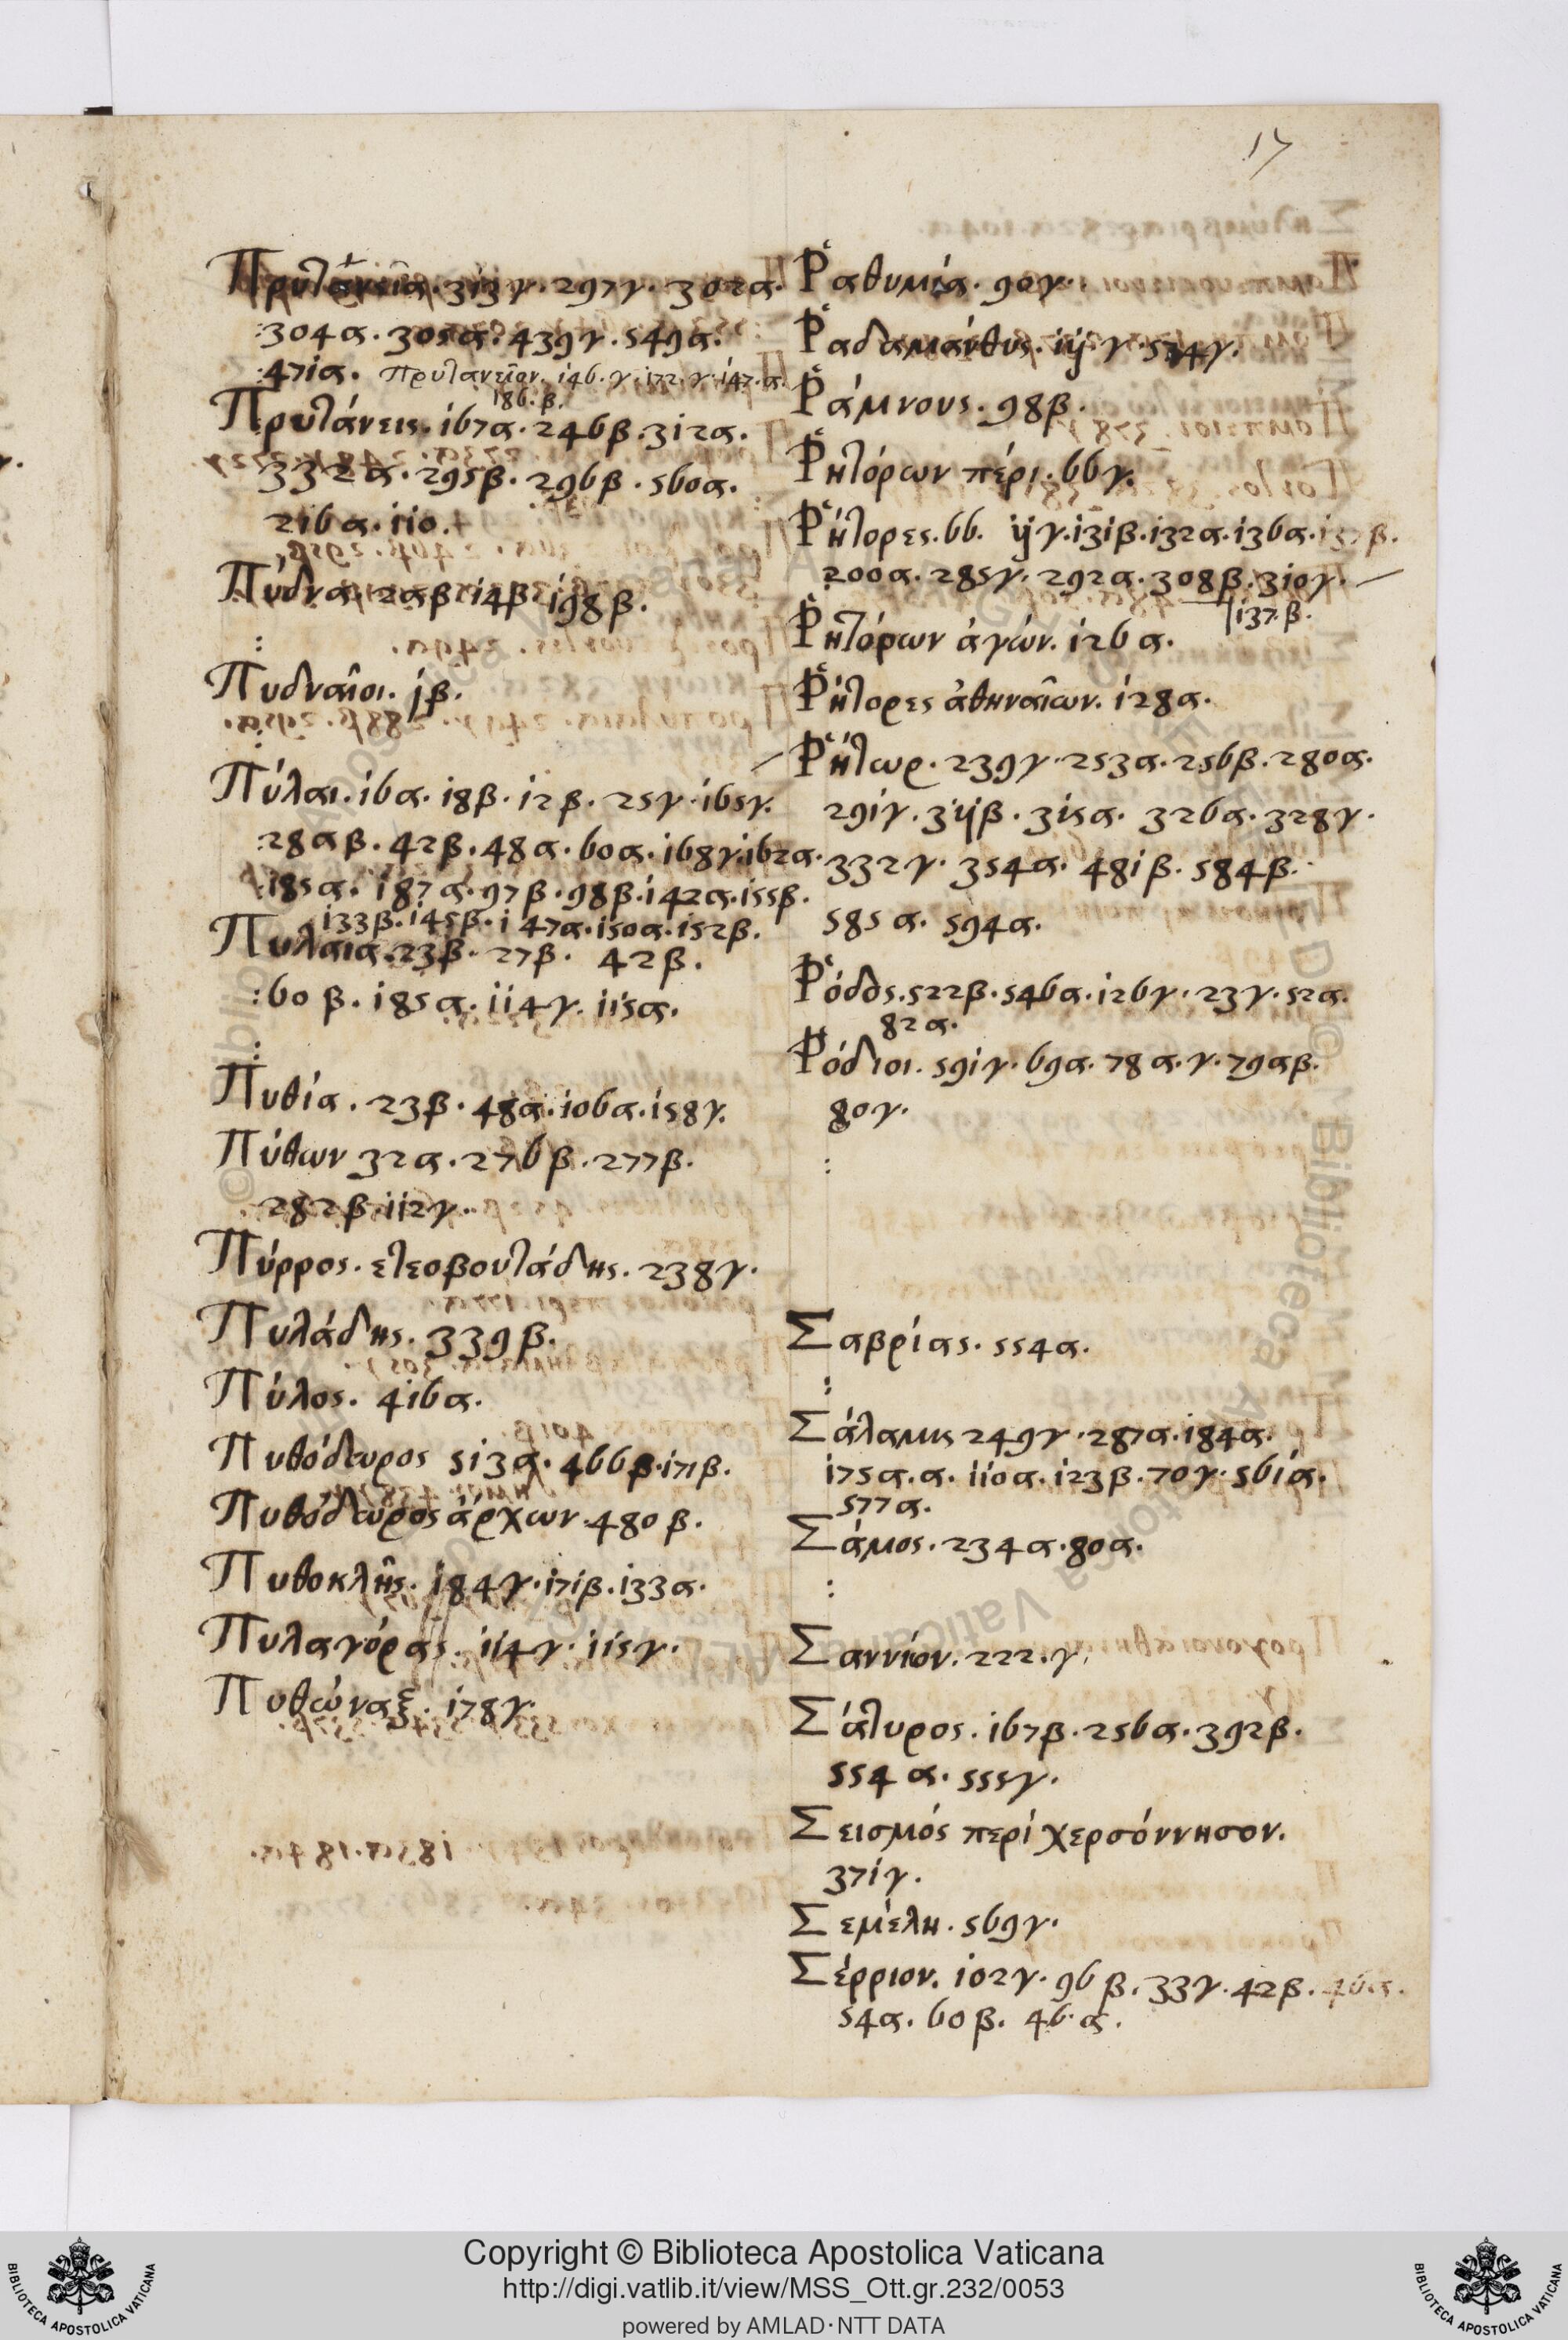 17
Πρυτανεῖα. 313γ. 297γ. 302α.
:304α. 305α. 439γ. 549α.
:471α. πρυτανεῖον. 146. γ. 172. γ. 147. α.
186. β.
Πρυτάνεις. 167α. 246β. 312α.
332α. 295β. 296β. 560α.
216α. 110.
Πύδνα. 2αβ. 14β. 198β.
:
Πυδναῖοι. 1β.
:
Πύλαι. 16α. 18β. 12β. 25γ. 165γ.
:28αβ. 42β. 48α. 60α. 168γ. 162α.
:185α. 187α. 97β. 98β. 142α. 155β.
133β. 145β. 147α. 150α. 152β.
Πυλαια. 23β. 27β. 42β.
:60β. 185α. 114γ. 115α.
:
Πυθία. 23β. 48α. 106α. 158γ.
Πύθων 32α. 276β. 277β.
282β. 112γ.
Πύρρος. ετεοβουτάδης. 238γ.
Πυλάδης. 339β.
Πύλος. 416α.
Πυθόδωρος 513α. 466β. 171β.
Πυθόδωρος ἄρχων 480β.
Πυθοκλῆς. 184γ. 171β. 133α.
Πυλαγόρας. 114γ. 115γ.
Πυθώναξ. 178γ.
Ῥαθυμία. 90γ.
Ῥαδαμάνθυς. 11γ. 574γ.
Ῥάμνους. 98β.
Ῥητόρων πέρι. 66γ.
Ῥήτορες. 66. 11γ. 131β. 132α. 136α. 137β.
200α. 285γ. 292α. 308β. 310γ.
137. β.
Ῥητόρων ἀγών. 126α.
Ῥήτορες ἀθηναίων. 128α.
Ῥήτωρ. 239γ. 253α. 256β. 280α.
291γ. 311β. 315α. 326α. 328γ.
332γ. 354α. 481β. 584β.
585α. 594α.
Ῥόδος. 522β. 546α. 126γ. 23γ. 52α.
82α.
Ῥόδιοι. 591γ. 69α. 78α. γ. 79αβ.
80γ.
:
Σαβρίας. 554α.
:
Σάλαμις 249γ. 287α. 184α.
175α. α. 110α. 123β. 70γ. 561α.
577α.
Σάμος. 234α. 80α.
:
Σαννίον. 222. γ.
Σάτυρος. 167β. 256α. 392β.
554α. 555γ.
Σεισμός περί χερσόννησον.
371γ.
Σεμέλη. 569γ.
Σέρριον. 102γ. 96β. 33γ. 42β. 46α.
54α. 60β. 46. α.
Copyright © Biblioteca Apostolica Vaticana
http://digi.vatlib.it/view/MSS_Ott.gr.232/0053
powered by AMLAD·NTT DATA
BIBLIOTECA APOSTOLICA VATICANA
BIBLIOTECA APOSTOLICA VATICANA